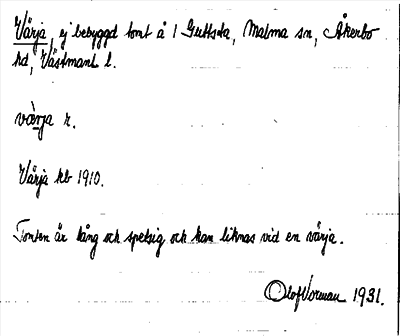 Värja, ej bebyggd tomt å 1 Guttsta, Malma sn, Åkerbo
hd, Västmanl l.
värja r.
Värja kb 1910.
Tomten är lång och spetsig och kan liknas vid en värja.
Olof Vorman 1931.